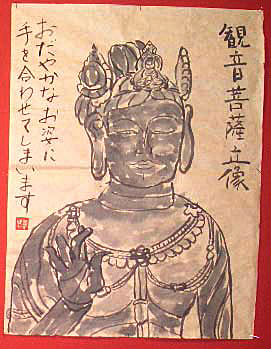 観音菩薩立像
おだやかなお姿に
手を合わせてしまいます